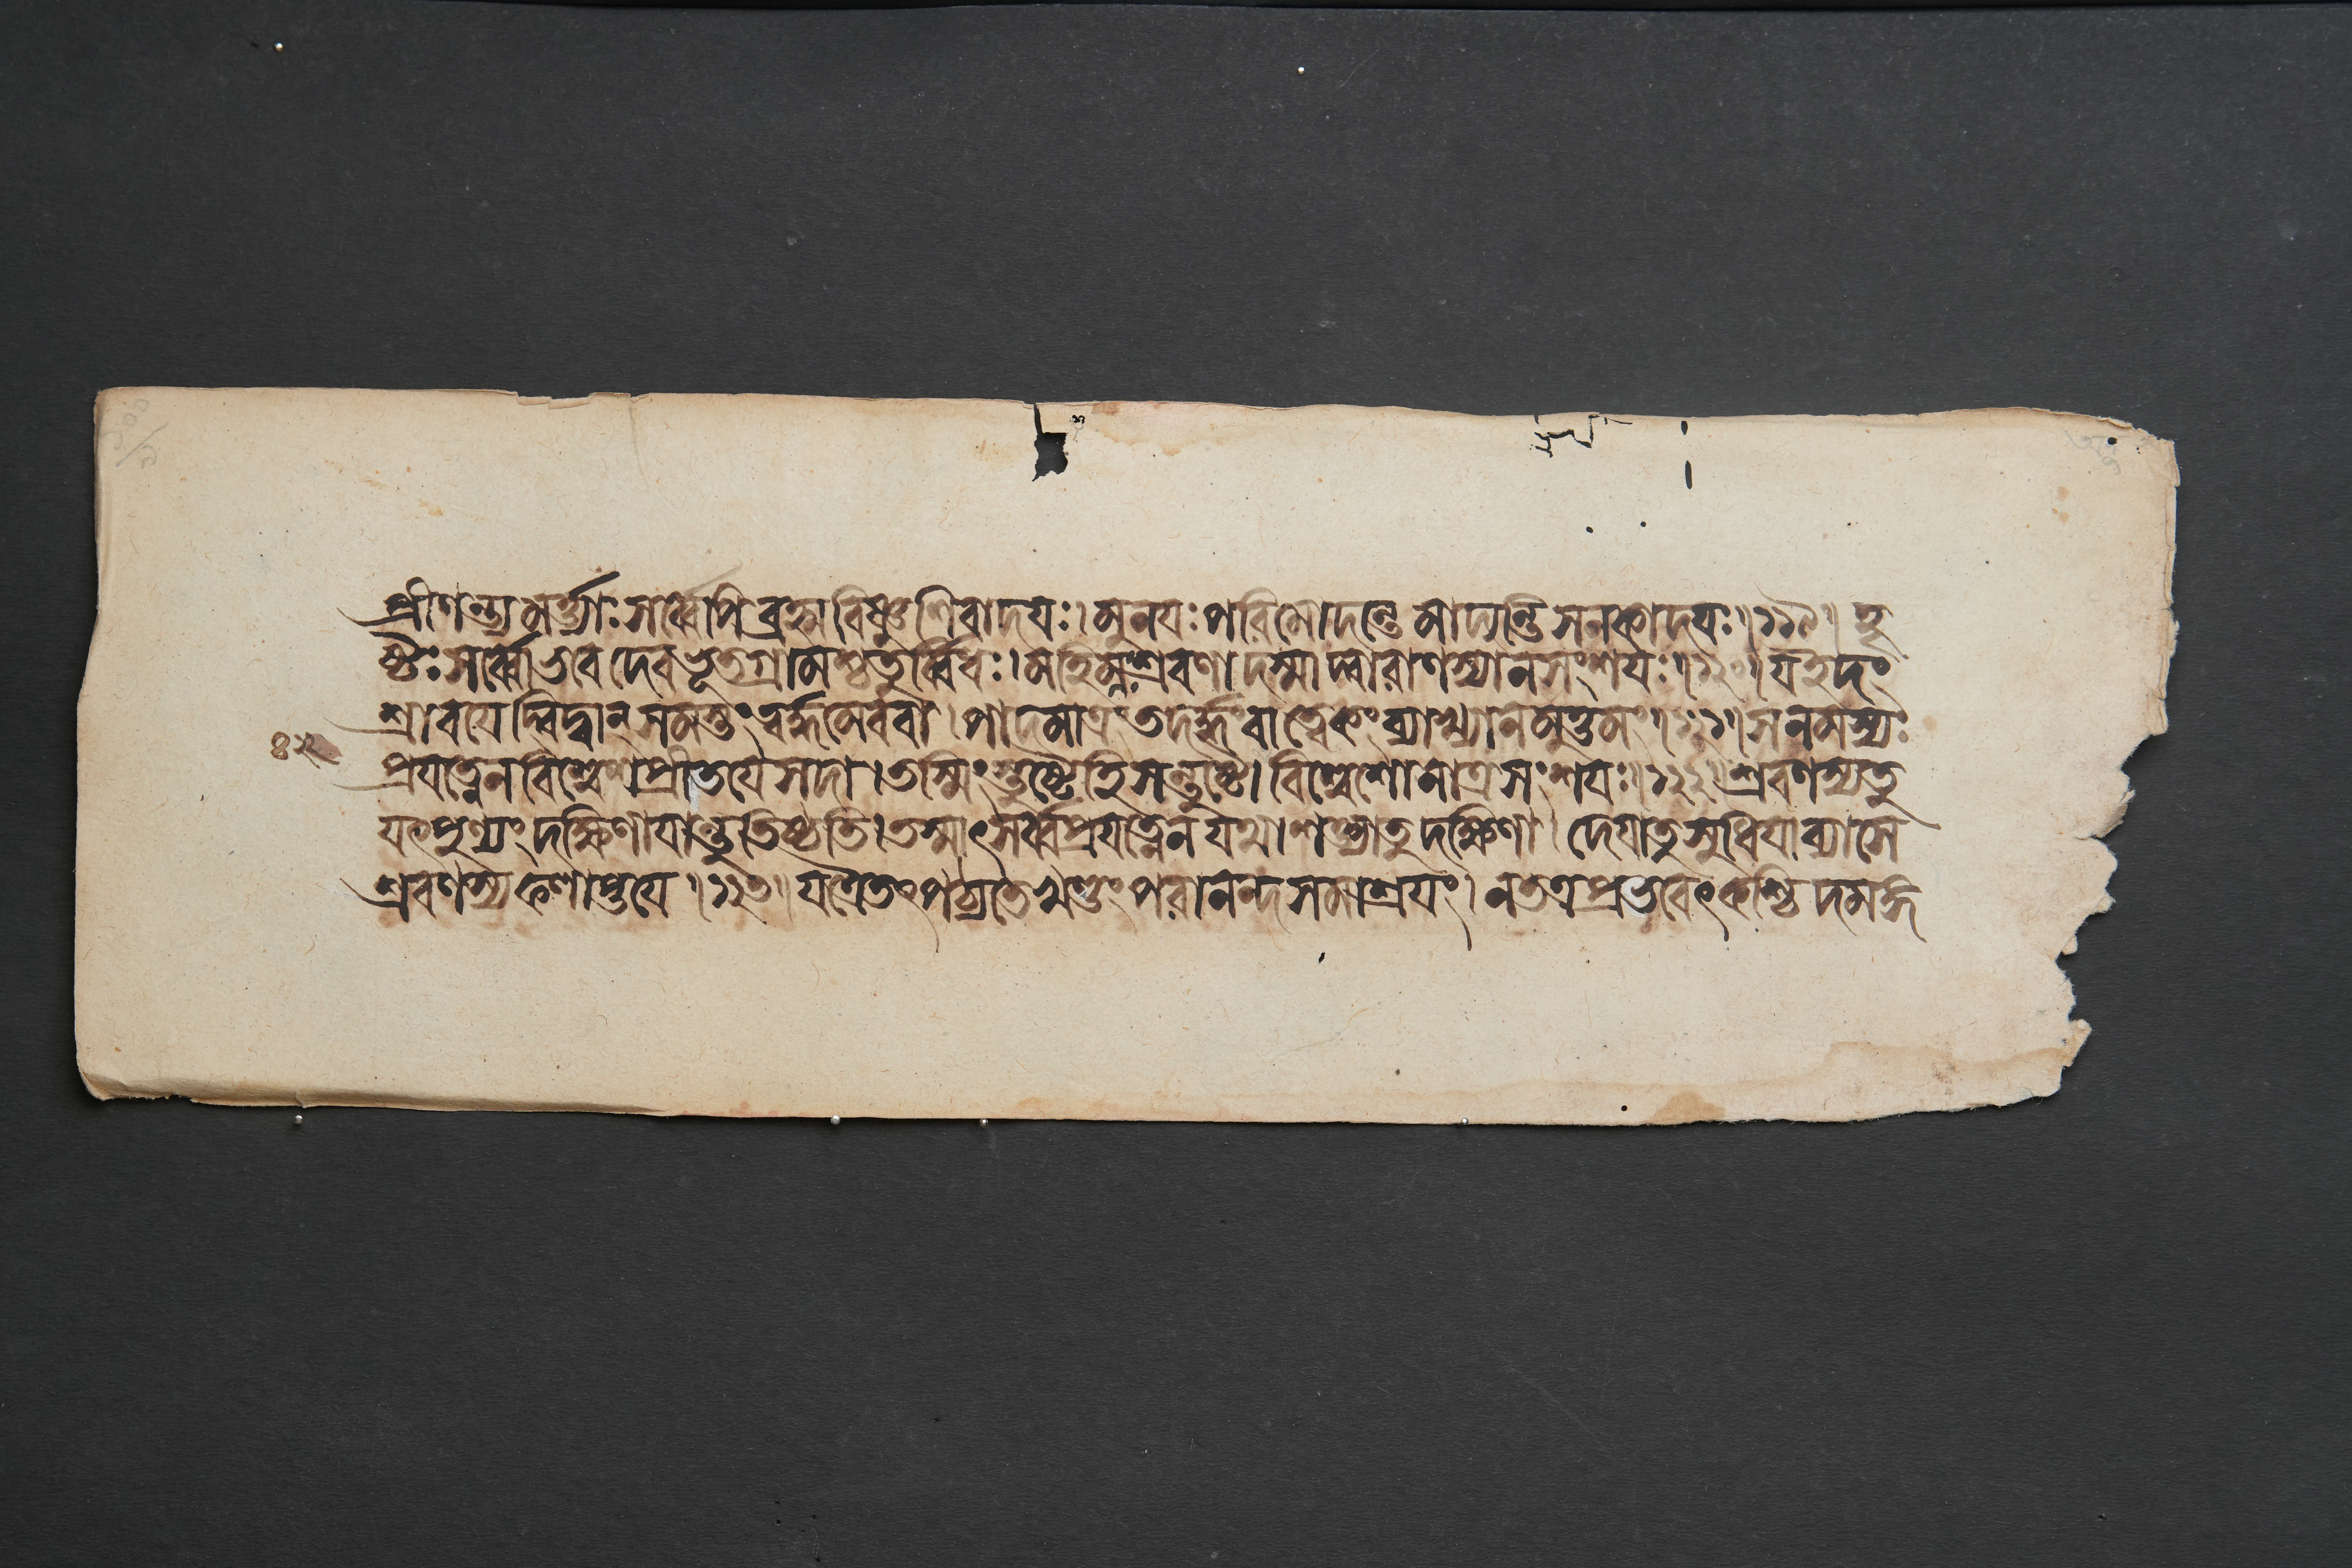 প্রীণন্ত্যমর্ত্ত্যাঃসর্ব্বেপিব্রহ্মাবিষ্ণুশিবাদয়ঃ।মুনয়ঃপরিমোদন্তেমাদ্যন্তিসনকাদয়ঃ॥১১৯॥হৃ
ষ্টৈঃসর্ব্বোভবদেবভূতগ্রামশ্চতুর্ব্বিধঃ।মহিম্নঃশ্রবণাদস্মাদ্বারাণস্যানসংশয়ঃ॥১২০॥যইদং
শ্রাবয়েদ্বিদ্বান্সমস্তংত্বর্দ্ধমেববা।পাদমাত্রংতদর্দ্ধংবাত্বেকংব্যাখ্যানমুত্তমং॥১২১॥সনমস্যঃ
প্রযত্নেনবিশ্বেশপ্রীতয়েসদা।তস্মিংস্তুষ্টেহিসন্তুষ্টো।বিশ্বেশোনাত্রসংশয়ঃ॥১২২॥শ্রবণস্যতু
যৎপুণ্যংদক্ষিণায়ান্তুতিষ্ঠতি।তস্মাৎসর্ব্বপ্রযত্নেনযথাশক্ত্যাতুদক্ষিণা।দেয়াতুসুধিয়াব্যাসে
শ্রবণস্যফলাপ্তয়ে॥১২৩॥যত্রৈতৎপঠ্যতেখণ্ডংপরানন্দসমাশ্রয়ং।নতত্রপ্রভবেৎকশ্চিদমঙ্গ
৪২